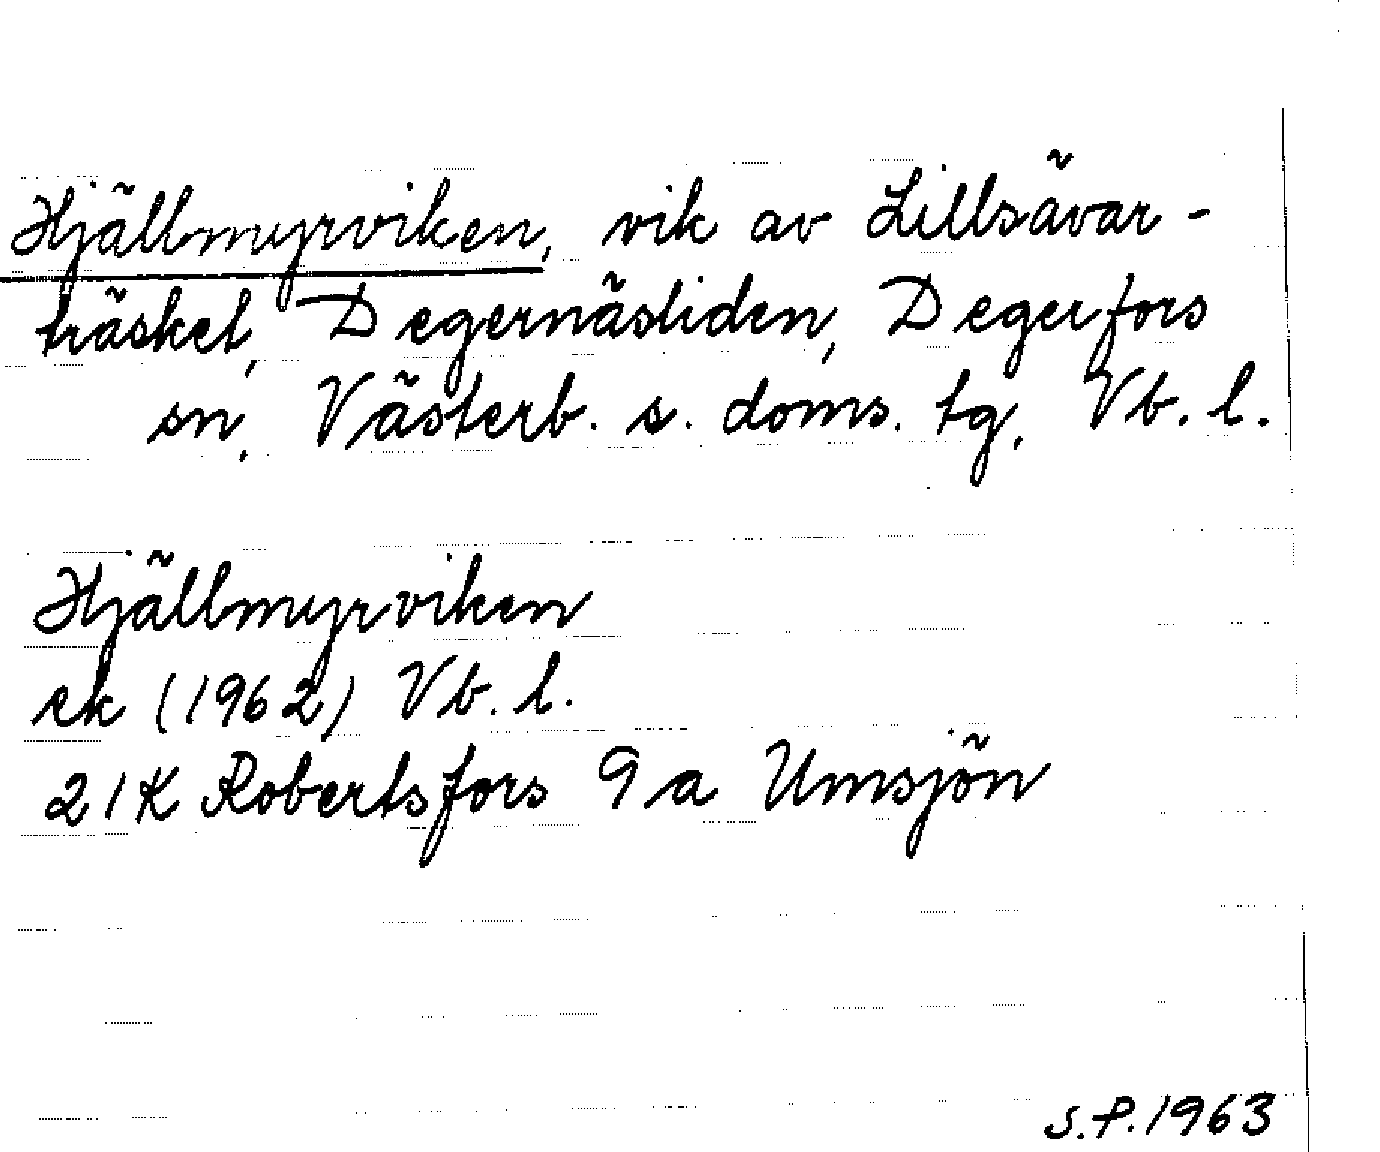 Hjällmyrviken, vik av Lillsävar-
träsket, Degernäsliden, Degerfors
sn, Västerb. s. doms. tg, Vb. l.
Hjällmyrviken
ek (1962) Vb. l.
21K Robertsfors 9a Umsjön
S.P.1963